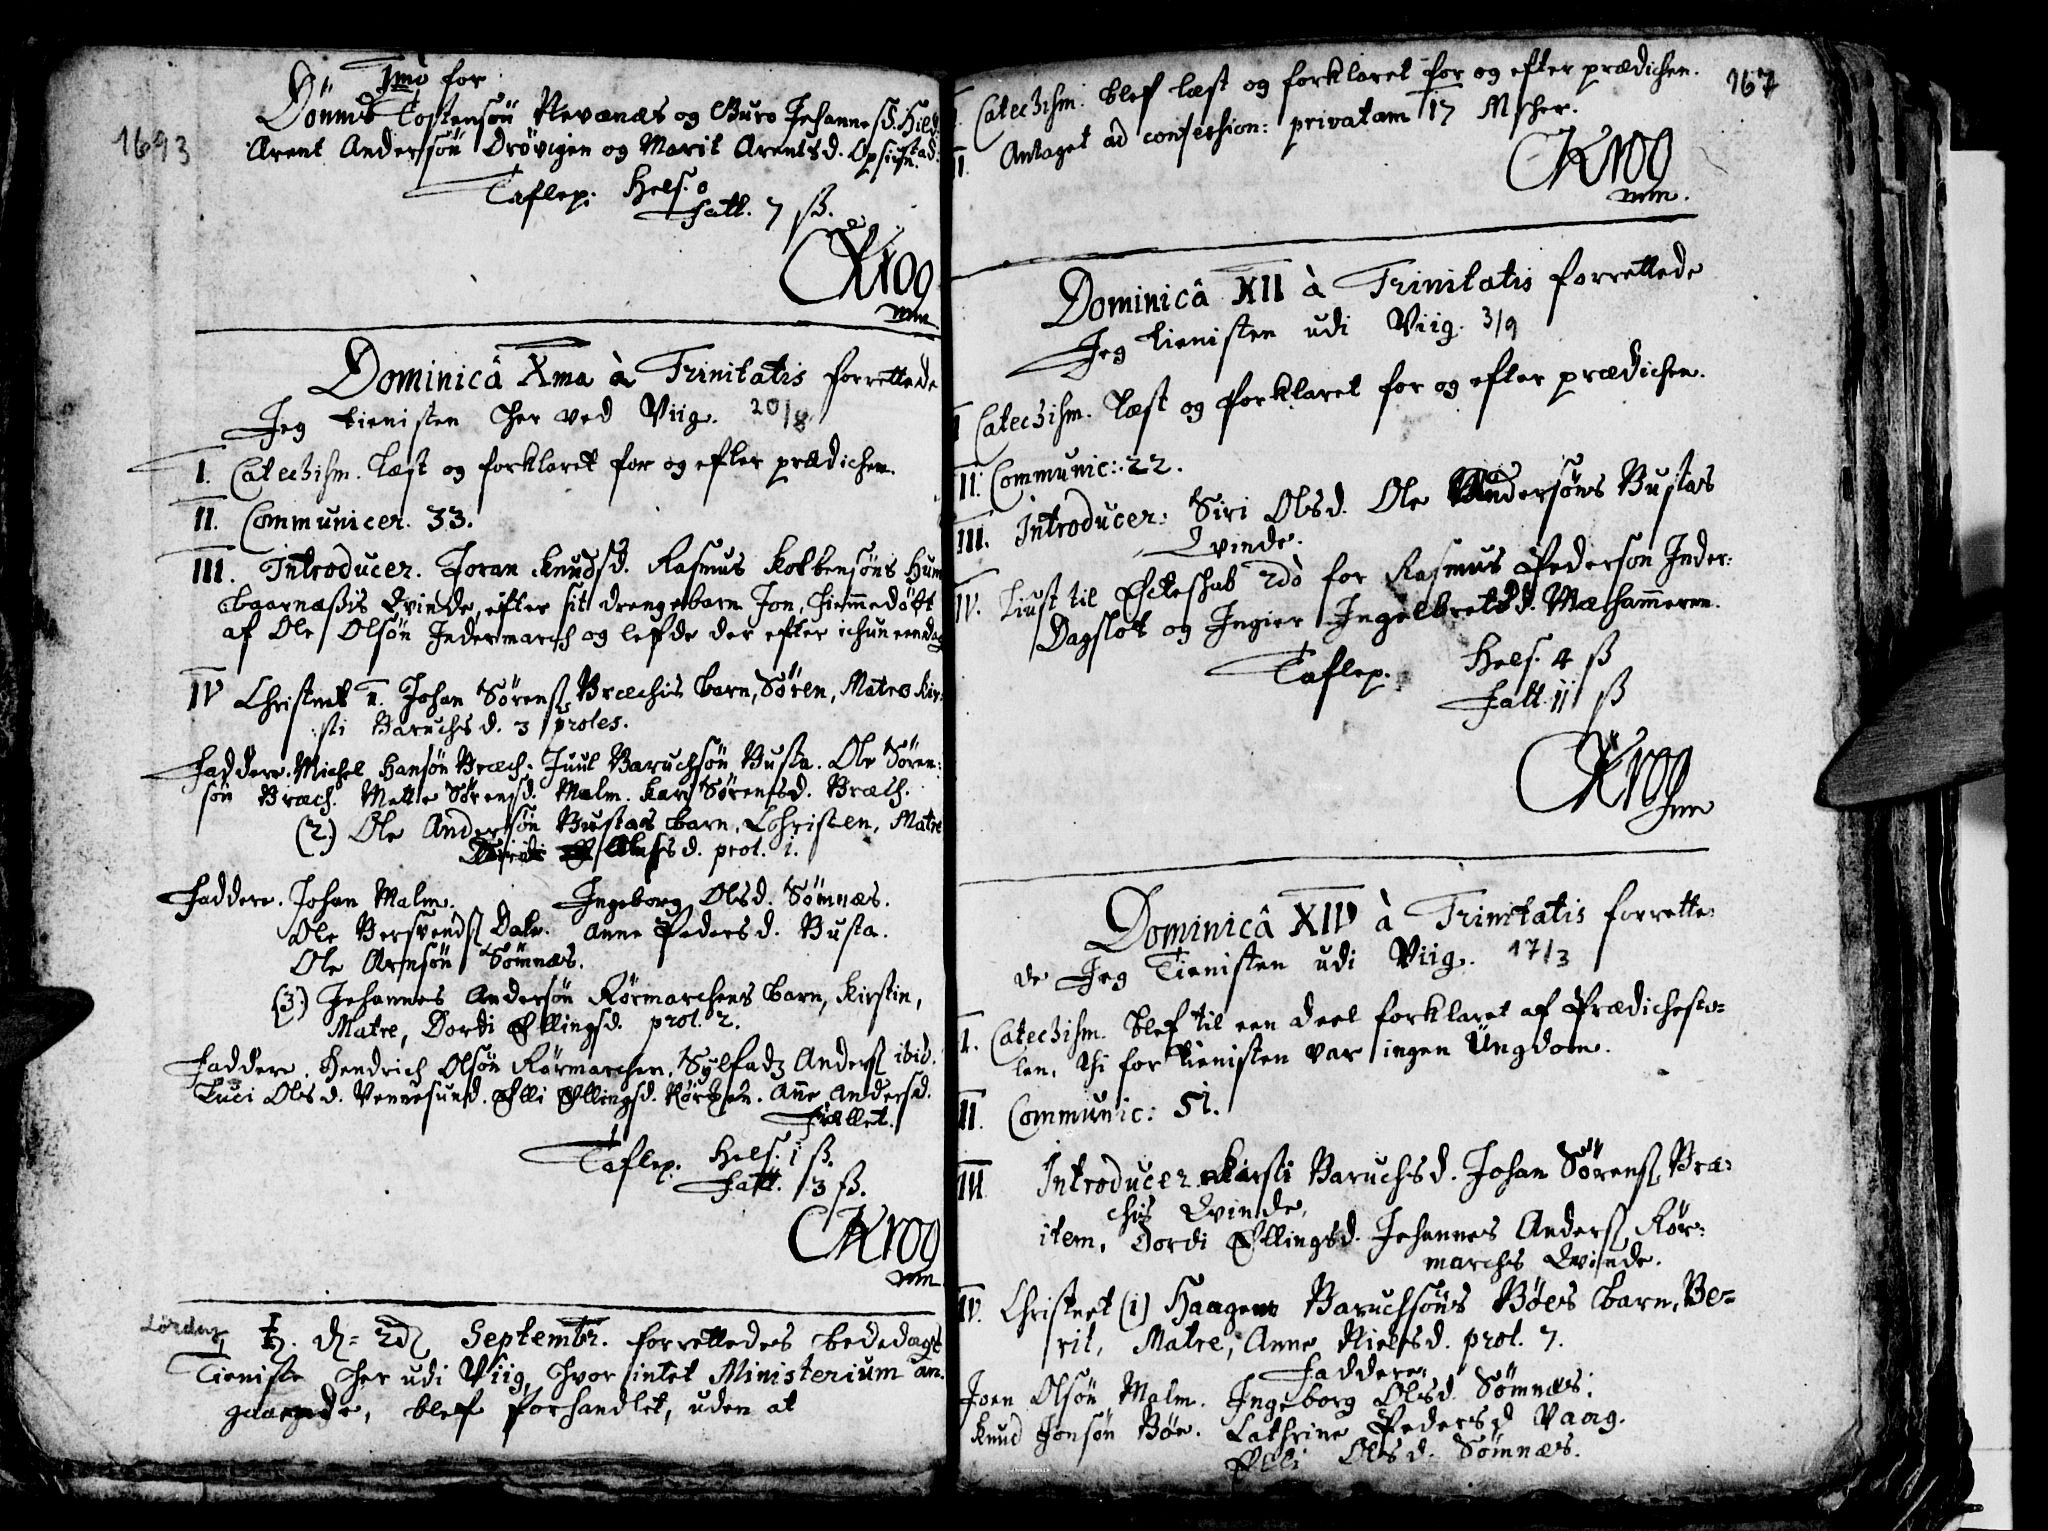 1693
1mo for
Dönnes Tostensøn Nevænæs og Guro Johannesd. Hild:
Arent Andersøn Drövigen og Marit Arentsd. Opsiøn.
stad:
Taflep. Hels. 0
Fatt. 7 ß.
CKrog
mm.
Dominicâ Xma à Trinitatis forrettede
Jeg tienisten her ved Viig. 20/8
I. Catechism. læst og forklaret for og efter prædichen.
II. Communicer. 33.
III. Introducer. Joran Knudsd. Rasmus Kolbensøns Hum
baarnæßis Qvinde, efter sit drengebarn Jon, hiemmedöft
af Ole Olsøn Indermarch og lefde der efter ichun een dag
IV Christnet 1. Johan Sørens. Bræchis barn, Søren, Matre Kir:
sti Baruchsd. 3 proles.
Faddere. Michel Hansøn Bræch. Juul Baruchsøn Busta. Ole Søren:
søn Bræch. Mette Sørensd. Malm. Kari Sørensd. Bræch.
(2.) Ole Andersøn Bustas barn, Christen, Matre
Olsd. prol. 1.
Faddere. Johan Malm. Ingeborg Olsd. Sömnæs.
Ole Bersvends. Dale. Anne Pedersd. Busta.
Ole Arnsøn Sömnæs.
(3.) Johannes Andersøn Rørmarchens barn, Kirstin,
Matre, Dordi Ellingsd. prol. 2.
Faddere. Hendrich Olsøn Rørmarchen, Sylfadz Anders. ibid.
Luci Olsd. Vennesund. Elli Ellingsd. Rör Anne Andersd.
Fiællet.
Taflep. Hels. 1 ß.
Fatt. 3 ß.
CKrog
mm
Lördag
d. 2d. Septembr. forrettedes bededags
Tieniste her udi Viig, hvor intet Ministerium an:
gaaende, blef forhandlet, uden at
167
I. Catechism. blef læst og forklaret for og efter prædichen.
II. Antaget ad confession: privatam 17 Mscher.
CKrog
mm.
Dominicâ XII à Trinitatis forrettede
Jeg tienisten udi Viig. 3/9
I Catechism. læst og forklaret for og efter prædichen.
II. Communic: 22.
III. Introducer: Siri Olsd. Ole Andersøns Bustas
Qvinde.
IV. Liust til Ecteskab 2do for Rasmus Pedersøn Inder:
Dagslot og Ingier Ingelbretsd. Mælhammeren.
Taflep. Hels. 4 ß
Fatt. 11 ß
CKrog
mm
Dominicâ XIV à Trinitatis forrette:
de Jeg Tienisten udi Viig. 17/3
I. Catechism. blef til een deel forklaret af Prædichesto-
len, thi for tienisten var ingen Ungdom.
II. Communic: 51.
III Introducer. Kirsti Baruchsd. Johan Sørens. Bræ:
chis Qvinde,
item, Dordi Ellingsd. Johannes Anders. Rør:
marchs Qvinde.
IV. Christnet (1) Haagen Baruchsøns Böes barn, Be-
rit, Matre, Anne Nielsd. prol. 7.
Faddere.
Joen Olsøn Malm. Ingeborg Olsd. Sömnæs.
Knud Jonsøn Böe. Cathrine Pedersd Vaag.
Elli Olsd. Sömnæs.